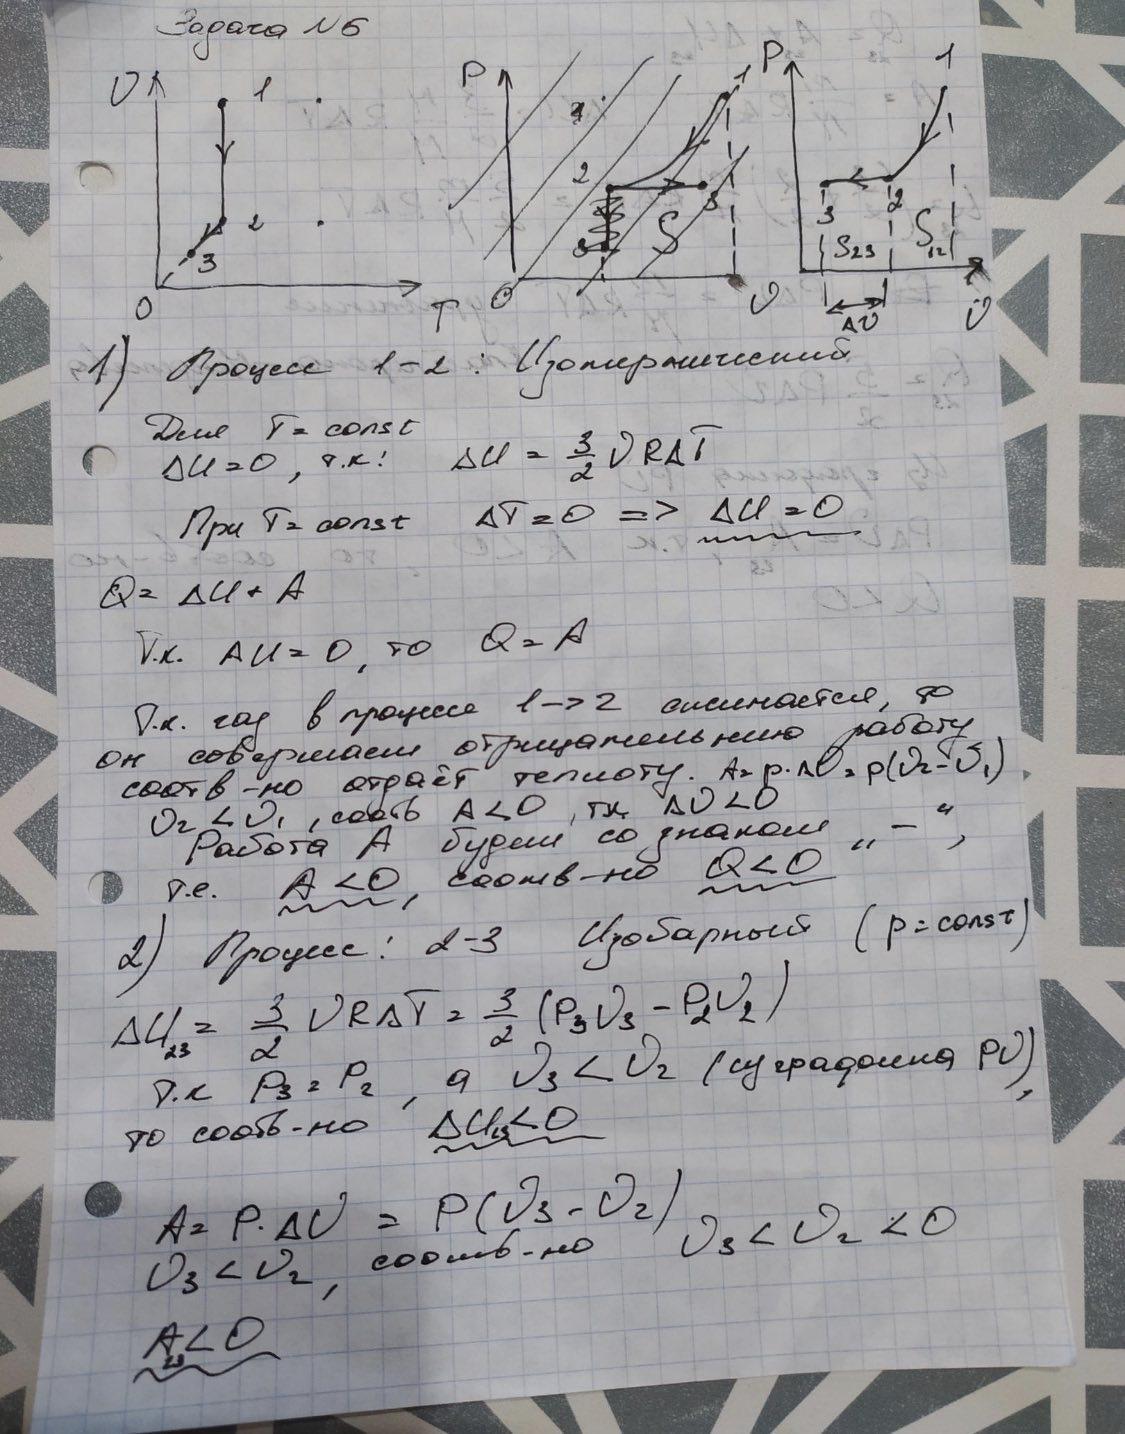 Задача N6
V 1 2 3 0 T
P 1 2 3 S 0 V
P 1 2 3 S₂₃ S₁₂ ΔV V
1) Процесс 1-2: Изотермический
Для T = const
ΔU = 0, т.к: ΔU = 3/2 νRΔT
При T = const ΔT = 0 => ΔU = 0
Q = ΔU + A
Т.к. ΔU = 0, то Q = A
Т.к. газ в процессе 1->2 сжимается, то
он совершает отрицательную работу
соотв-но отдаёт теплоту. A = p·ΔV = p(V₂-V₁)
V₂ < V₁, соотв A<0, тк ΔV<0
Работа A будет со знаком „-“,
т.е. A<0, соотв-но Q<0
2) Процесс: 2-3 Изобарный (p = const)
ΔU₂₃ = 3/2 νRΔT = 3/2 (P₃V₃ - P₂V₂)
т.к P₃ = P₂, а V₃ < V₂ (из градфика PV),
то соотв-но ΔU₂₃<0
A = P·ΔV = P(V₃ - V₂)
V₃ < V₂, соотв-но V₃ < V₂ < 0
A₂₃<0